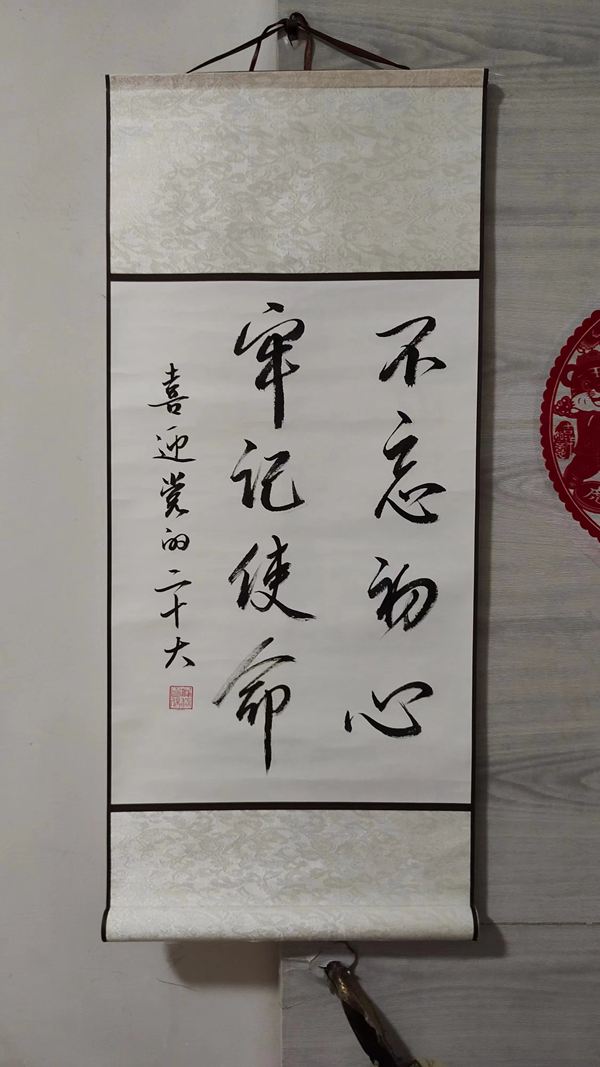 不忘初心
牢记使命
喜迎党的二十大